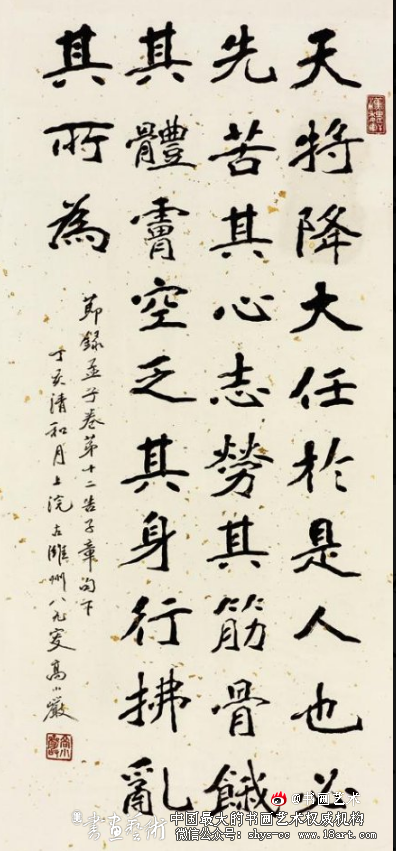 天将降大任於是人也必
先苦其心志勞其筋骨餓
其體膚空乏其身行拂亂
其所為
節錄孟子卷第十二告子章句下
丁亥清和月上浣古州八九叟高小巖
@书画艺术
書畫藝術
中国最大的书画艺术权威机构
微信公众号: shys-cc www.18art.com